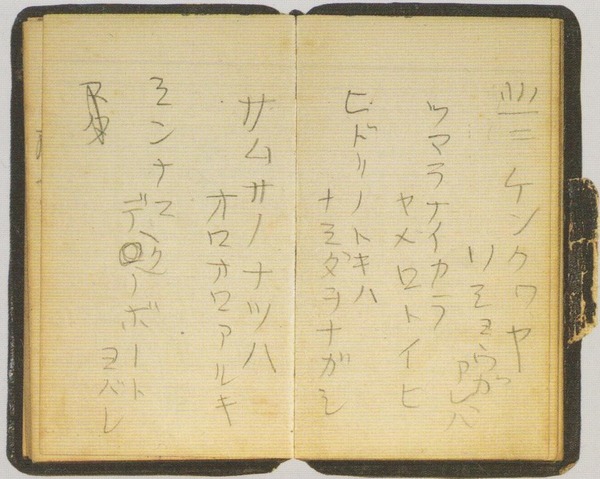 北ニケンクヮヤ
ソショウガアレバ
ツマラナイカラ
ヤメロトイヒ
ヒドリノトキハ
ナミダヲナガシ
サムサノナツハ
オロオロアルキ
ミンナニ
デクノボート
ヨバレ